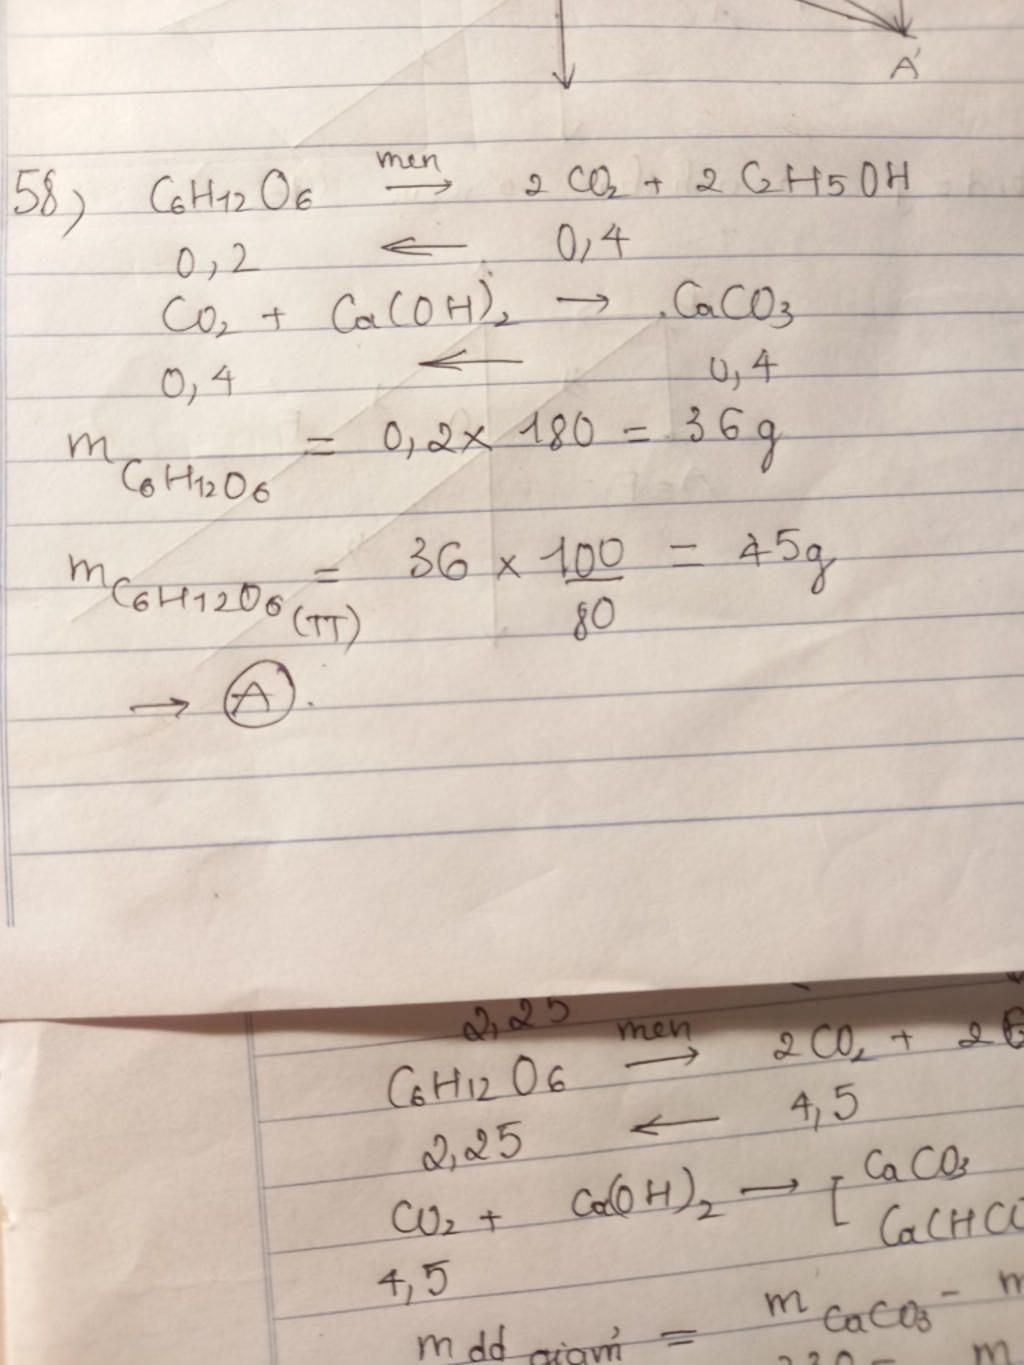 A'
58) C6H12O6 men → 2 CO2 + 2 C2H5OH
0,2 ← 0,4
CO2 + Ca(OH)2 → CaCO3
0,4 ← 0,4
m C6H12O6 = 0,2 x 180 = 36g
m C6H12O6 (TT) = 36 x 100/80 = 45g
→ A.
2,25
C6H12O6 men → 2CO2 + 2
2,25 ← 4,5
CO2 + Ca(OH)2 → [ CaCO3
Ca(HCO
4,5
m dd giảm = m CaCO3 - m